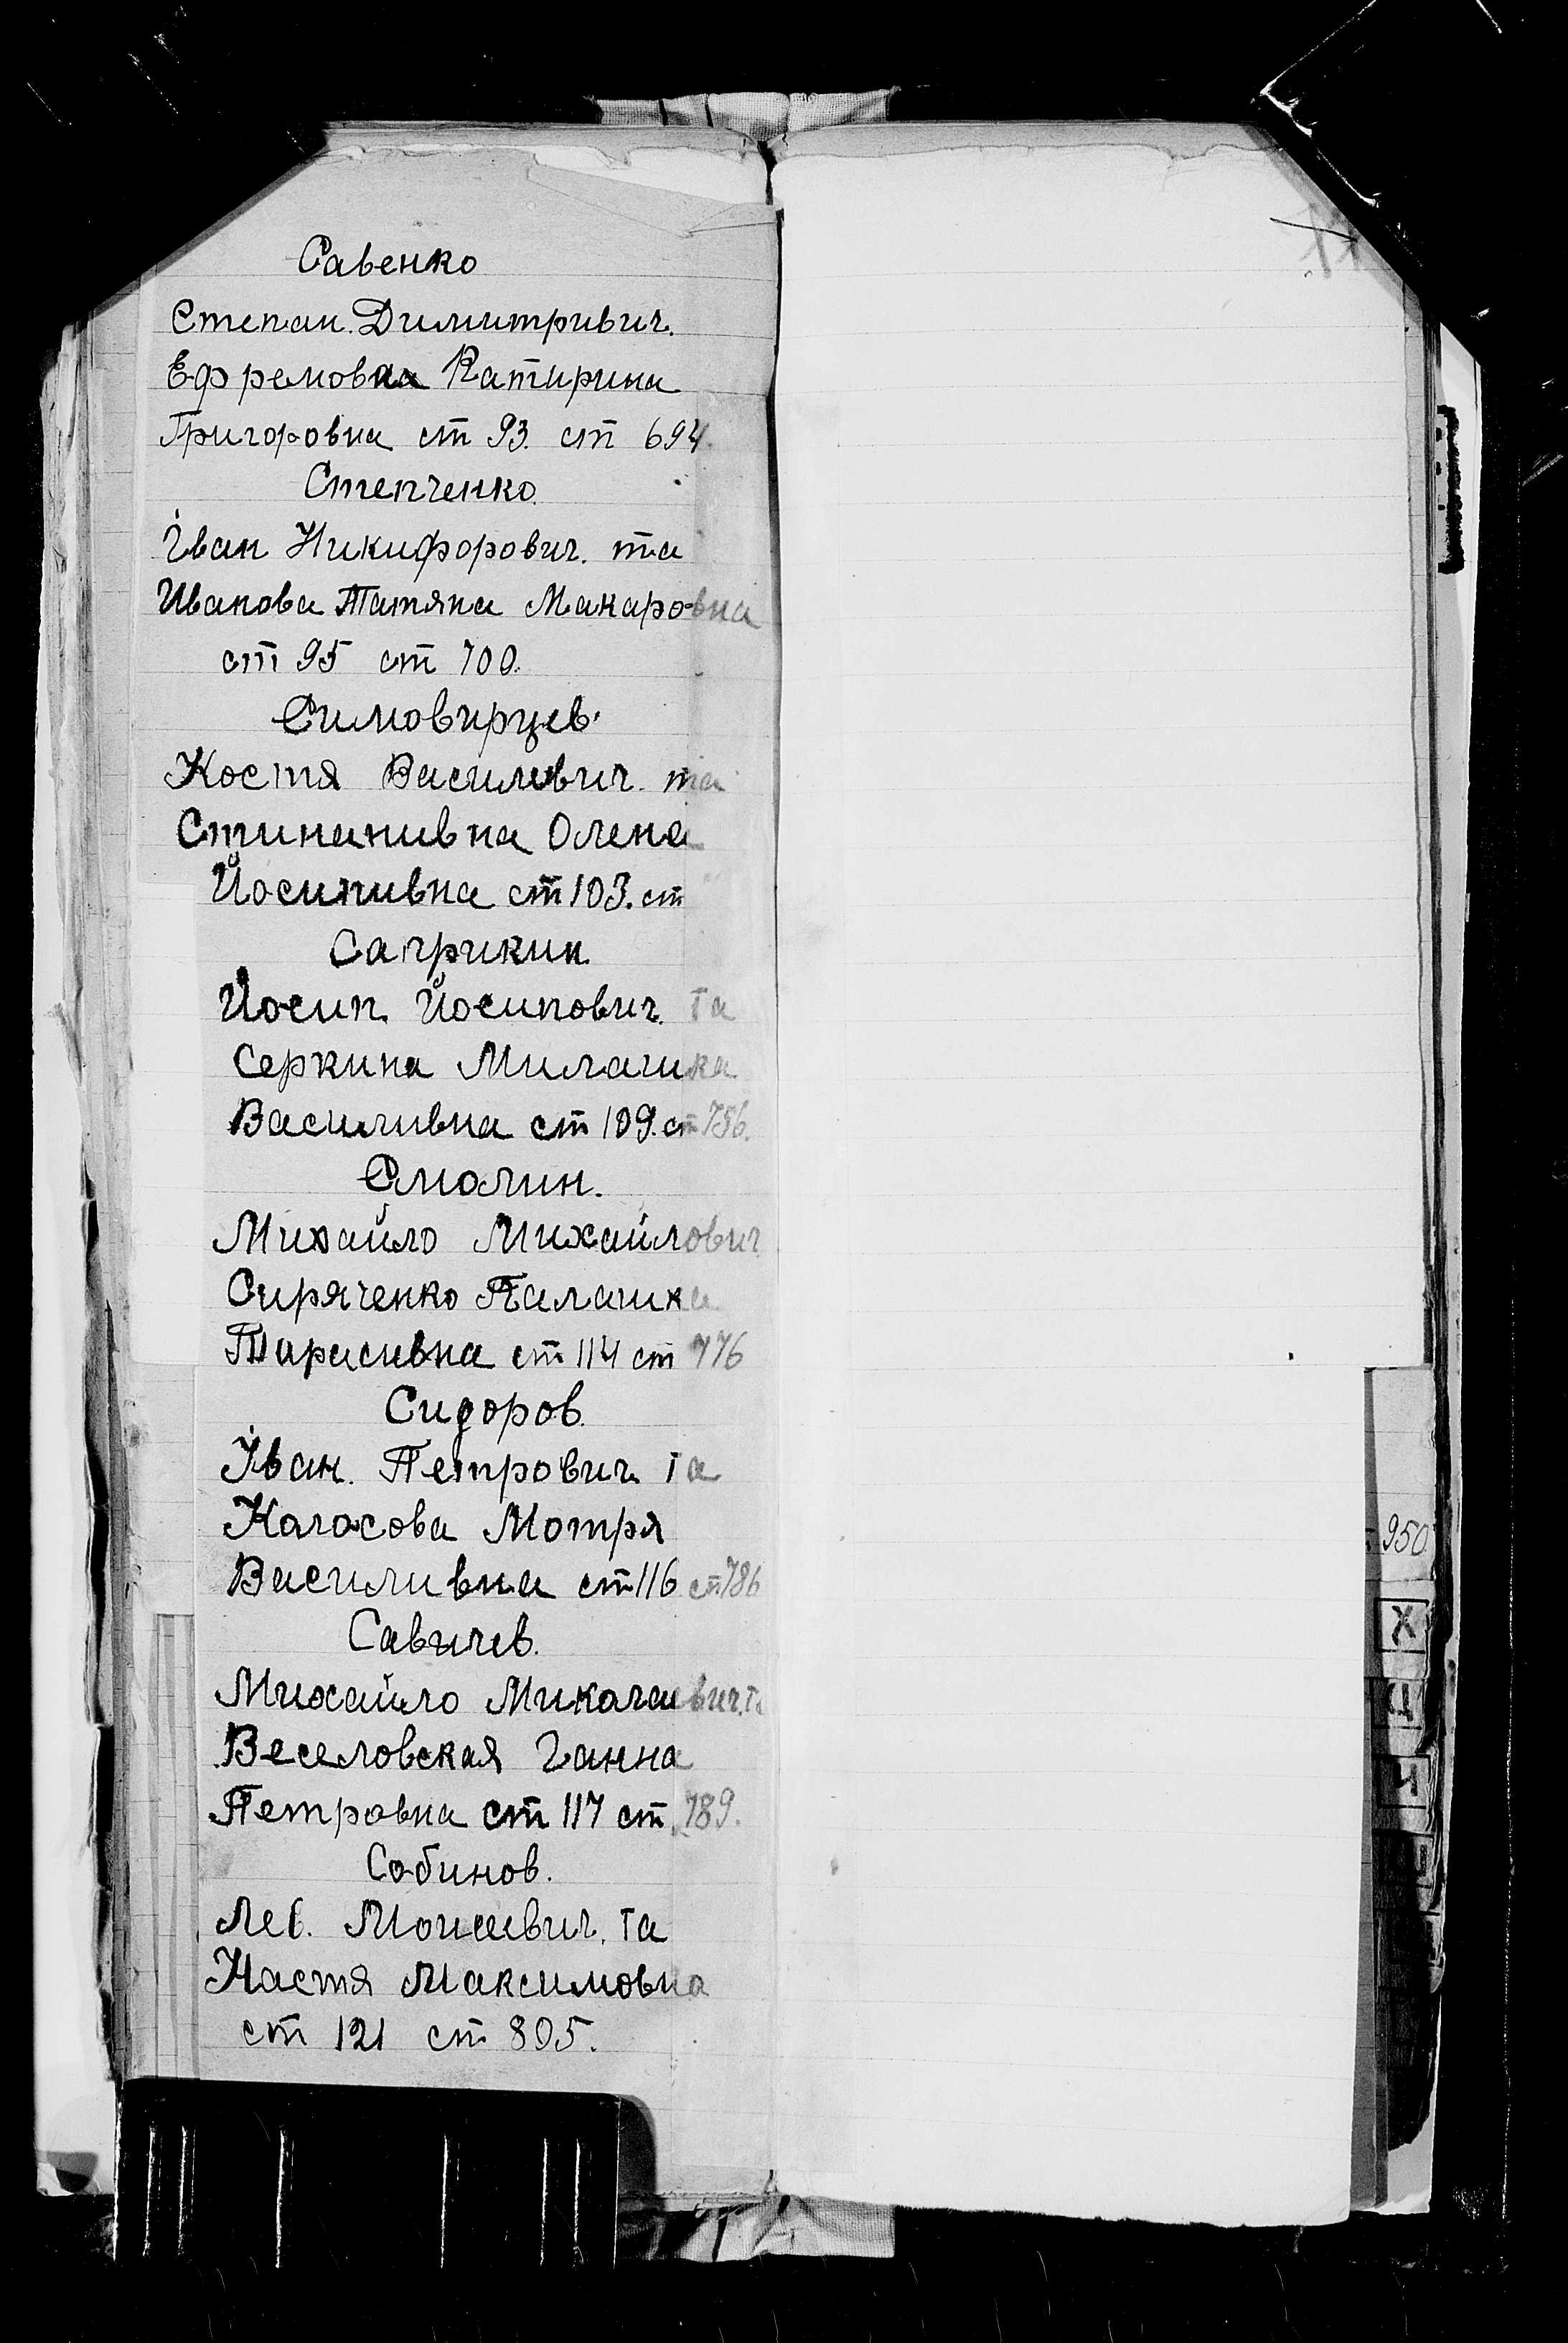 Савенко
Степан. Димитривич.
Ефремовна Катирина
Григоровна ст 93. ст 694.
Степченко.
Іван Никифорович. та
Иванова Татяна Макаровна
ст 95 ст 700.
Симовирцев.
Костя Василивич. та
Стинанивна Олена
Йосипивна ст 103. ст
Сапрыкин.
Йосип. Йосипович. та
Серкина Милашка
Василивна ст 109. ст 756.
Смолин.
Михайло Михайлович
Сиряченко Палашка
Тарасивна ст 114 ст 776
Сидоров.
Іван. Петрович та
Колосова Мотря
Василивна ст 116 ст 786
Савичев.
Михайло Миколаевич. та
Веселовская Ганна
Петровна ст 117 ст 789.
Собинов.
Лев. Моисеевич. та
Настя Максимовна
ст 121 ст 805.
11
950.
Х
Ц